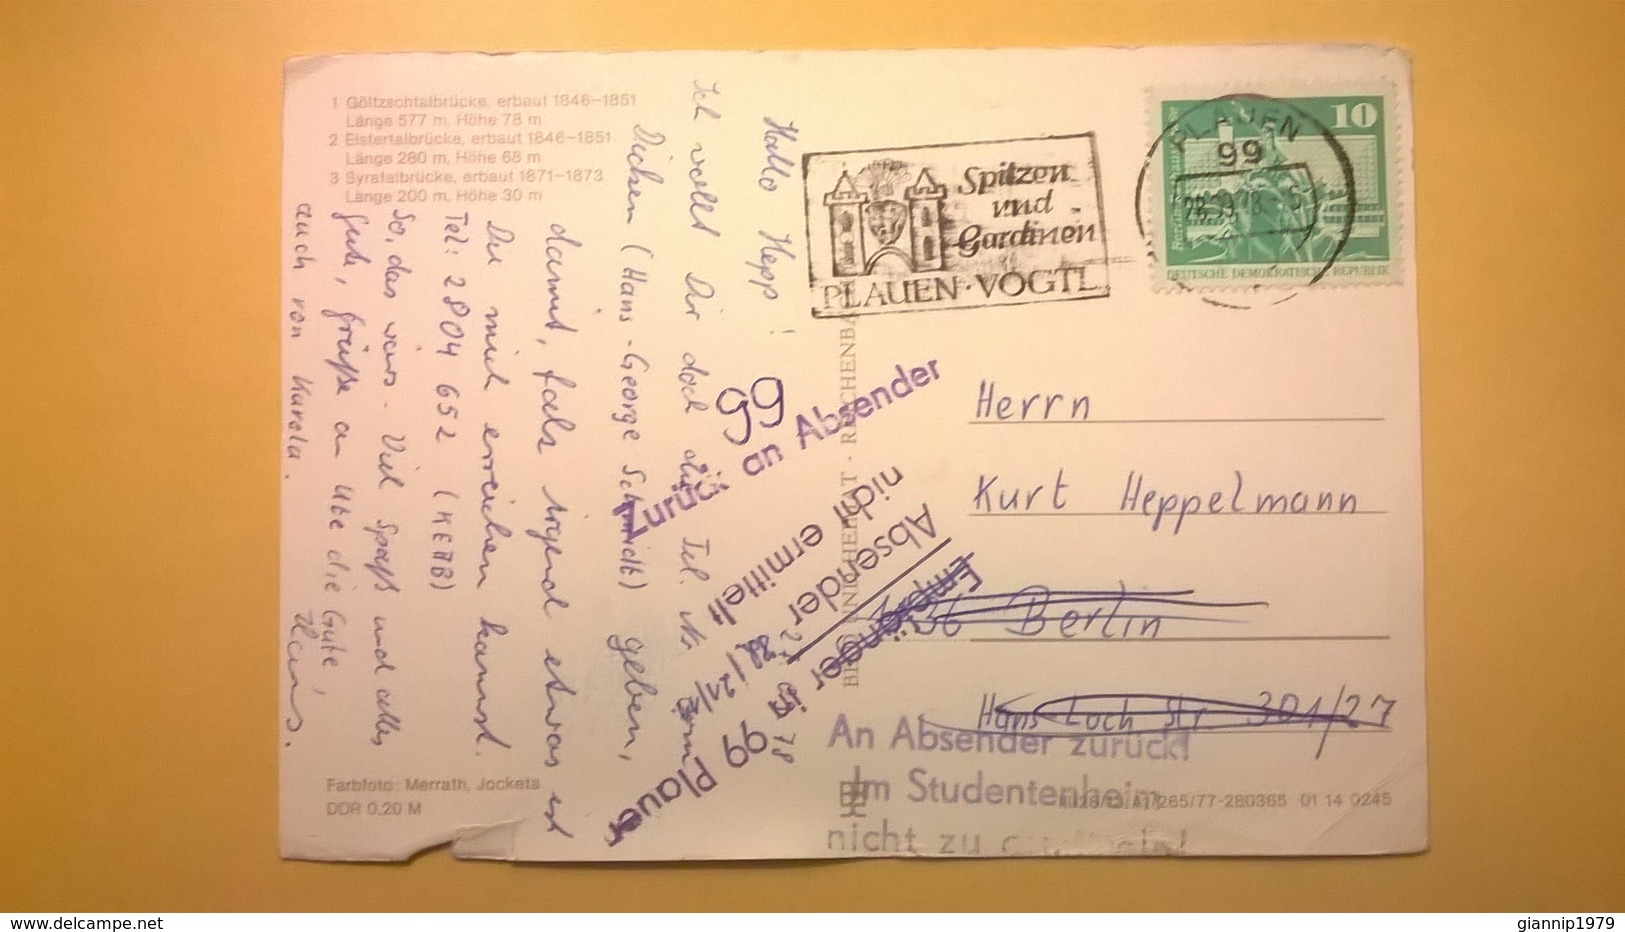 1 Göltzschtalbrücke, erbaut 1846–1851
Länge 577 m, Höhe 78 m
2 Elstertalbrücke, erbaut 1846–1851
Länge 280 m, Höhe 68 m
3 Syratalbrücke, erbaut 1871–1873
Länge 200 m, Höhe 30 m
Hallo Hepp!
Ich wollt Dir doch die Tel. Nr. vom
Dicken (Hans-George Schmidt) geben,
damit, falls irgend etwas ist
Du mich erreichen kannst.
Tel: 2804 652
So, das wars. Viel Spaß und alles
Gute, grüße an Ute die Gute,
auch von Karola. Heins.
Farbfoto: Merrath, Jocketa
DDR 0,20 M
Spitzen
und
Gardinen
PLAUEN · VOGTL
PLAUEN
99
10
DEUTSCHE DEMOKRATISCHE REPUBLIK
Herrn
Kurt Heppelmann
Berlin
Hans-Loch Str. 301/27
99
Zurück an Absender
Empfänger in 99 Plauen
Absender
nicht ermittelt
An Absender zurück!
Im Studentenheim
nicht zu
265/77-280365 01 14 0245
giannip1979